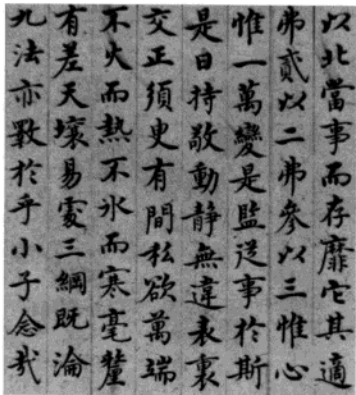 以北當事而存靡它其適
弗貳以二弗參以三惟心
惟一萬變是監從事於斯
是曰持敬動靜無違表裏
交正須臾有間私欲萬端
不火而熱不氷而寒毫釐
有差天壤易處三綱既淪
九法亦斁於乎小子念哉